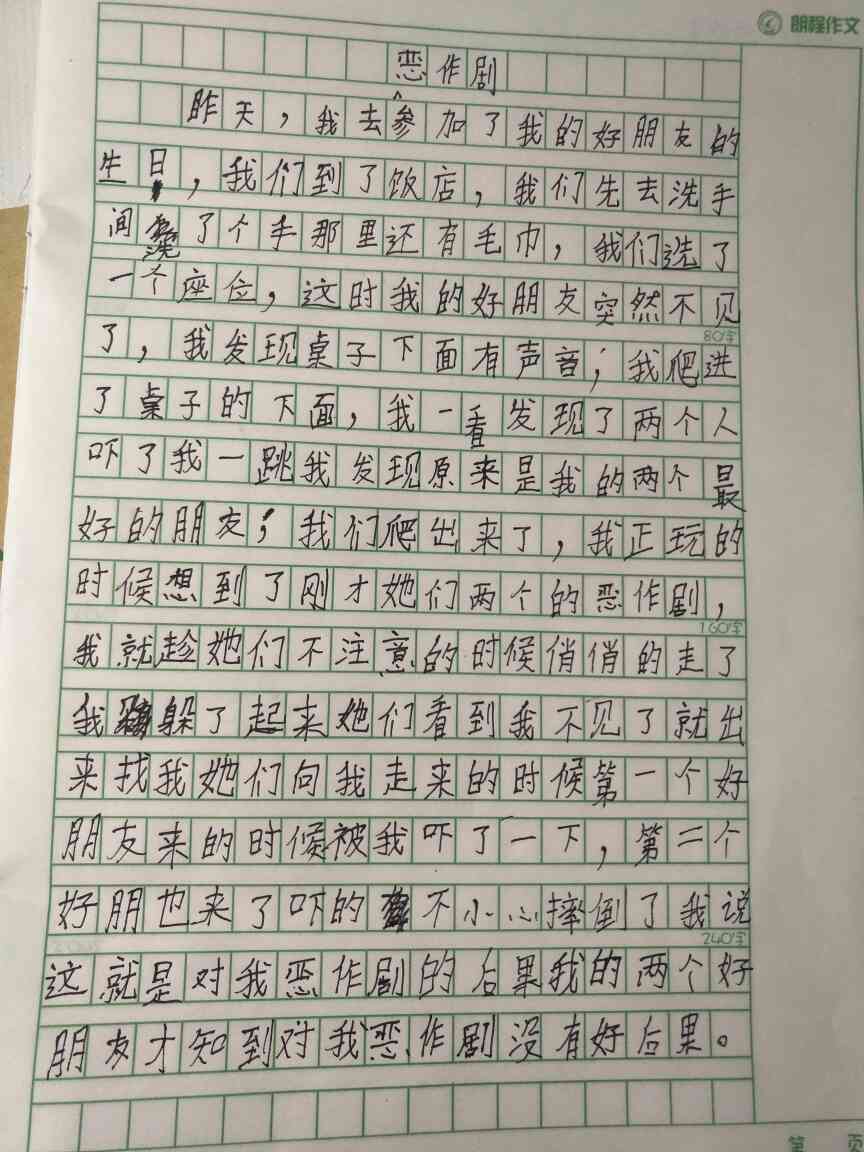 朗程作文
恶作剧
昨天，我去参加了我的好朋友的
生日，我们到了饭店，我们先去洗手
间洗了个手那里还有毛巾，我们选了
一个座位，这时我的好朋友突然不见
80字
了，我发现桌子下面有声音；我爬进
了桌子的下面，我一看发现了两个人
吓了我一跳我发现原来是我的两个最
好的朋友；我们爬出来了，我正玩的
时候想到了刚才她们两个的恶作剧，
160字
我就趁她们不注意的时候俏俏的走了
我躲了起来她们看到我不见了就出
来找我她们向我走来的时候第一个好
朋友来的时候被我吓了一下，第二个
好朋也来了吓的不小心摔倒了我说
240字
这就是对我恶作剧的后果我的两个好
朋友才知到对我恶作剧没有好后果。
第 页